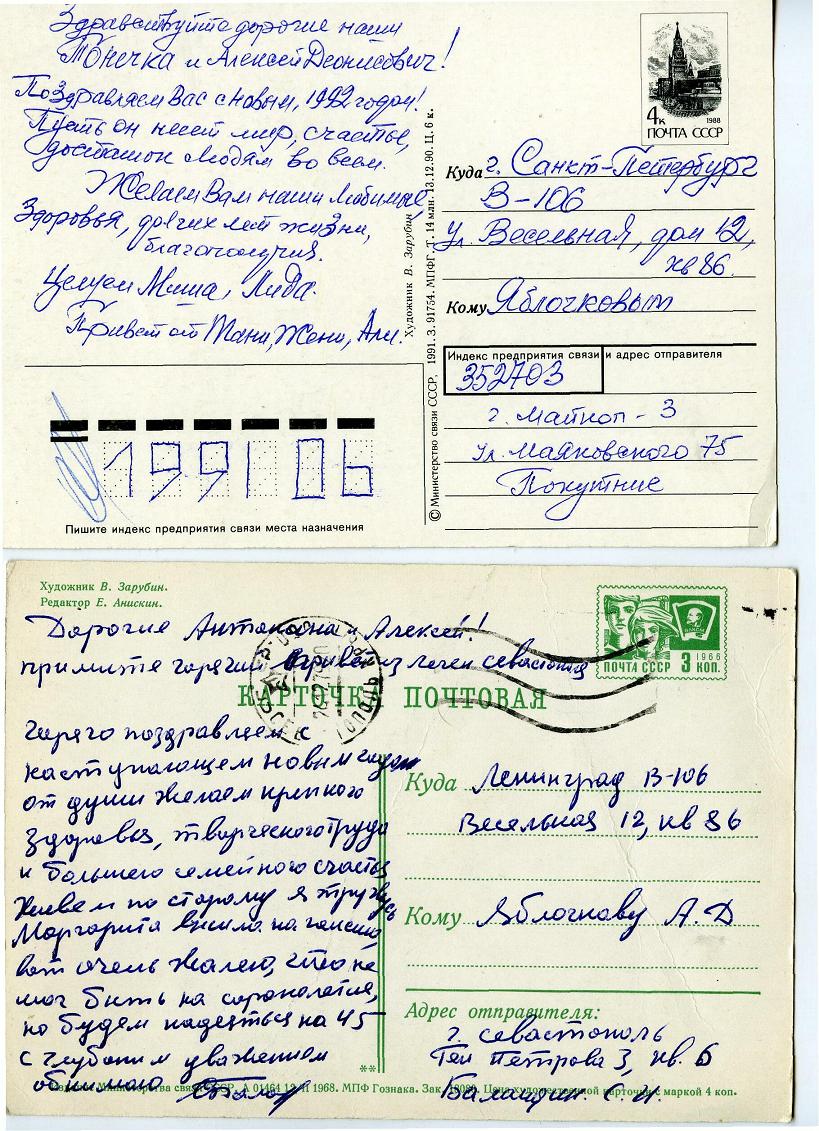 Здравствуйте дорогие наши
Тонечка и Алексей Деонисович!
Поздравляем Вас с новым, 1992 годом!
Пусть он несет мир, счастье,
достаток людям во всем.
Желаем Вам наши любимые
Здоровья, долгих лет жизни,
благополучия.
Целуем Миша, Лида.
Привет от Тани, Жени, Али.
Пишите индекс предприятия связи места назначения
199106
Художник В. Зарубин
© Министерство связи СССР, 1991. З. 91754. МПФГ. Т. 14 млн. 13.12.90. Ц. 6 к.
4к
1988
ПОЧТА СССР
Куда г. Санкт-Петербург
В-106
ул. Весельная, дом 12,
кв 86.
Кому Яблочковым
Индекс предприятия связи и адрес отправителя
352703
г. Майкоп - 3
ул. Маяковского 75
Покутние
Художник В. Зарубин.
Редактор Е. Анискин.
Дорогие Антонина и Алексей!
примите горячий привет из
ПОЧТА СССР 3 КОП.
1966
ВЛКСМ
КАРТОЧКА ПОЧТОВАЯ
Горячо поздравляем с
наступающем новым годом
от души желаем крепкого
здоровья, творческого труда
и большего семейного счастья
Живем по старому я тружусь
Маргарита вышла на
вот очень жалею, что не
мог быть на сороколетия,
но будем надеяться на 45
с глубоким уважением
обнимаю
Куда Ленинград В-106
Весельная 12, кв 86
Кому Яблочкову А. Д
Адрес отправителя:
г. Севастополь
Ген Петрова 3, кв. 6
С. И.
**
Министерства связи СССР. А 01464 12. II 1968. МПФ Гознака. Зак. Цена художественной карточки с маркой 4 коп.